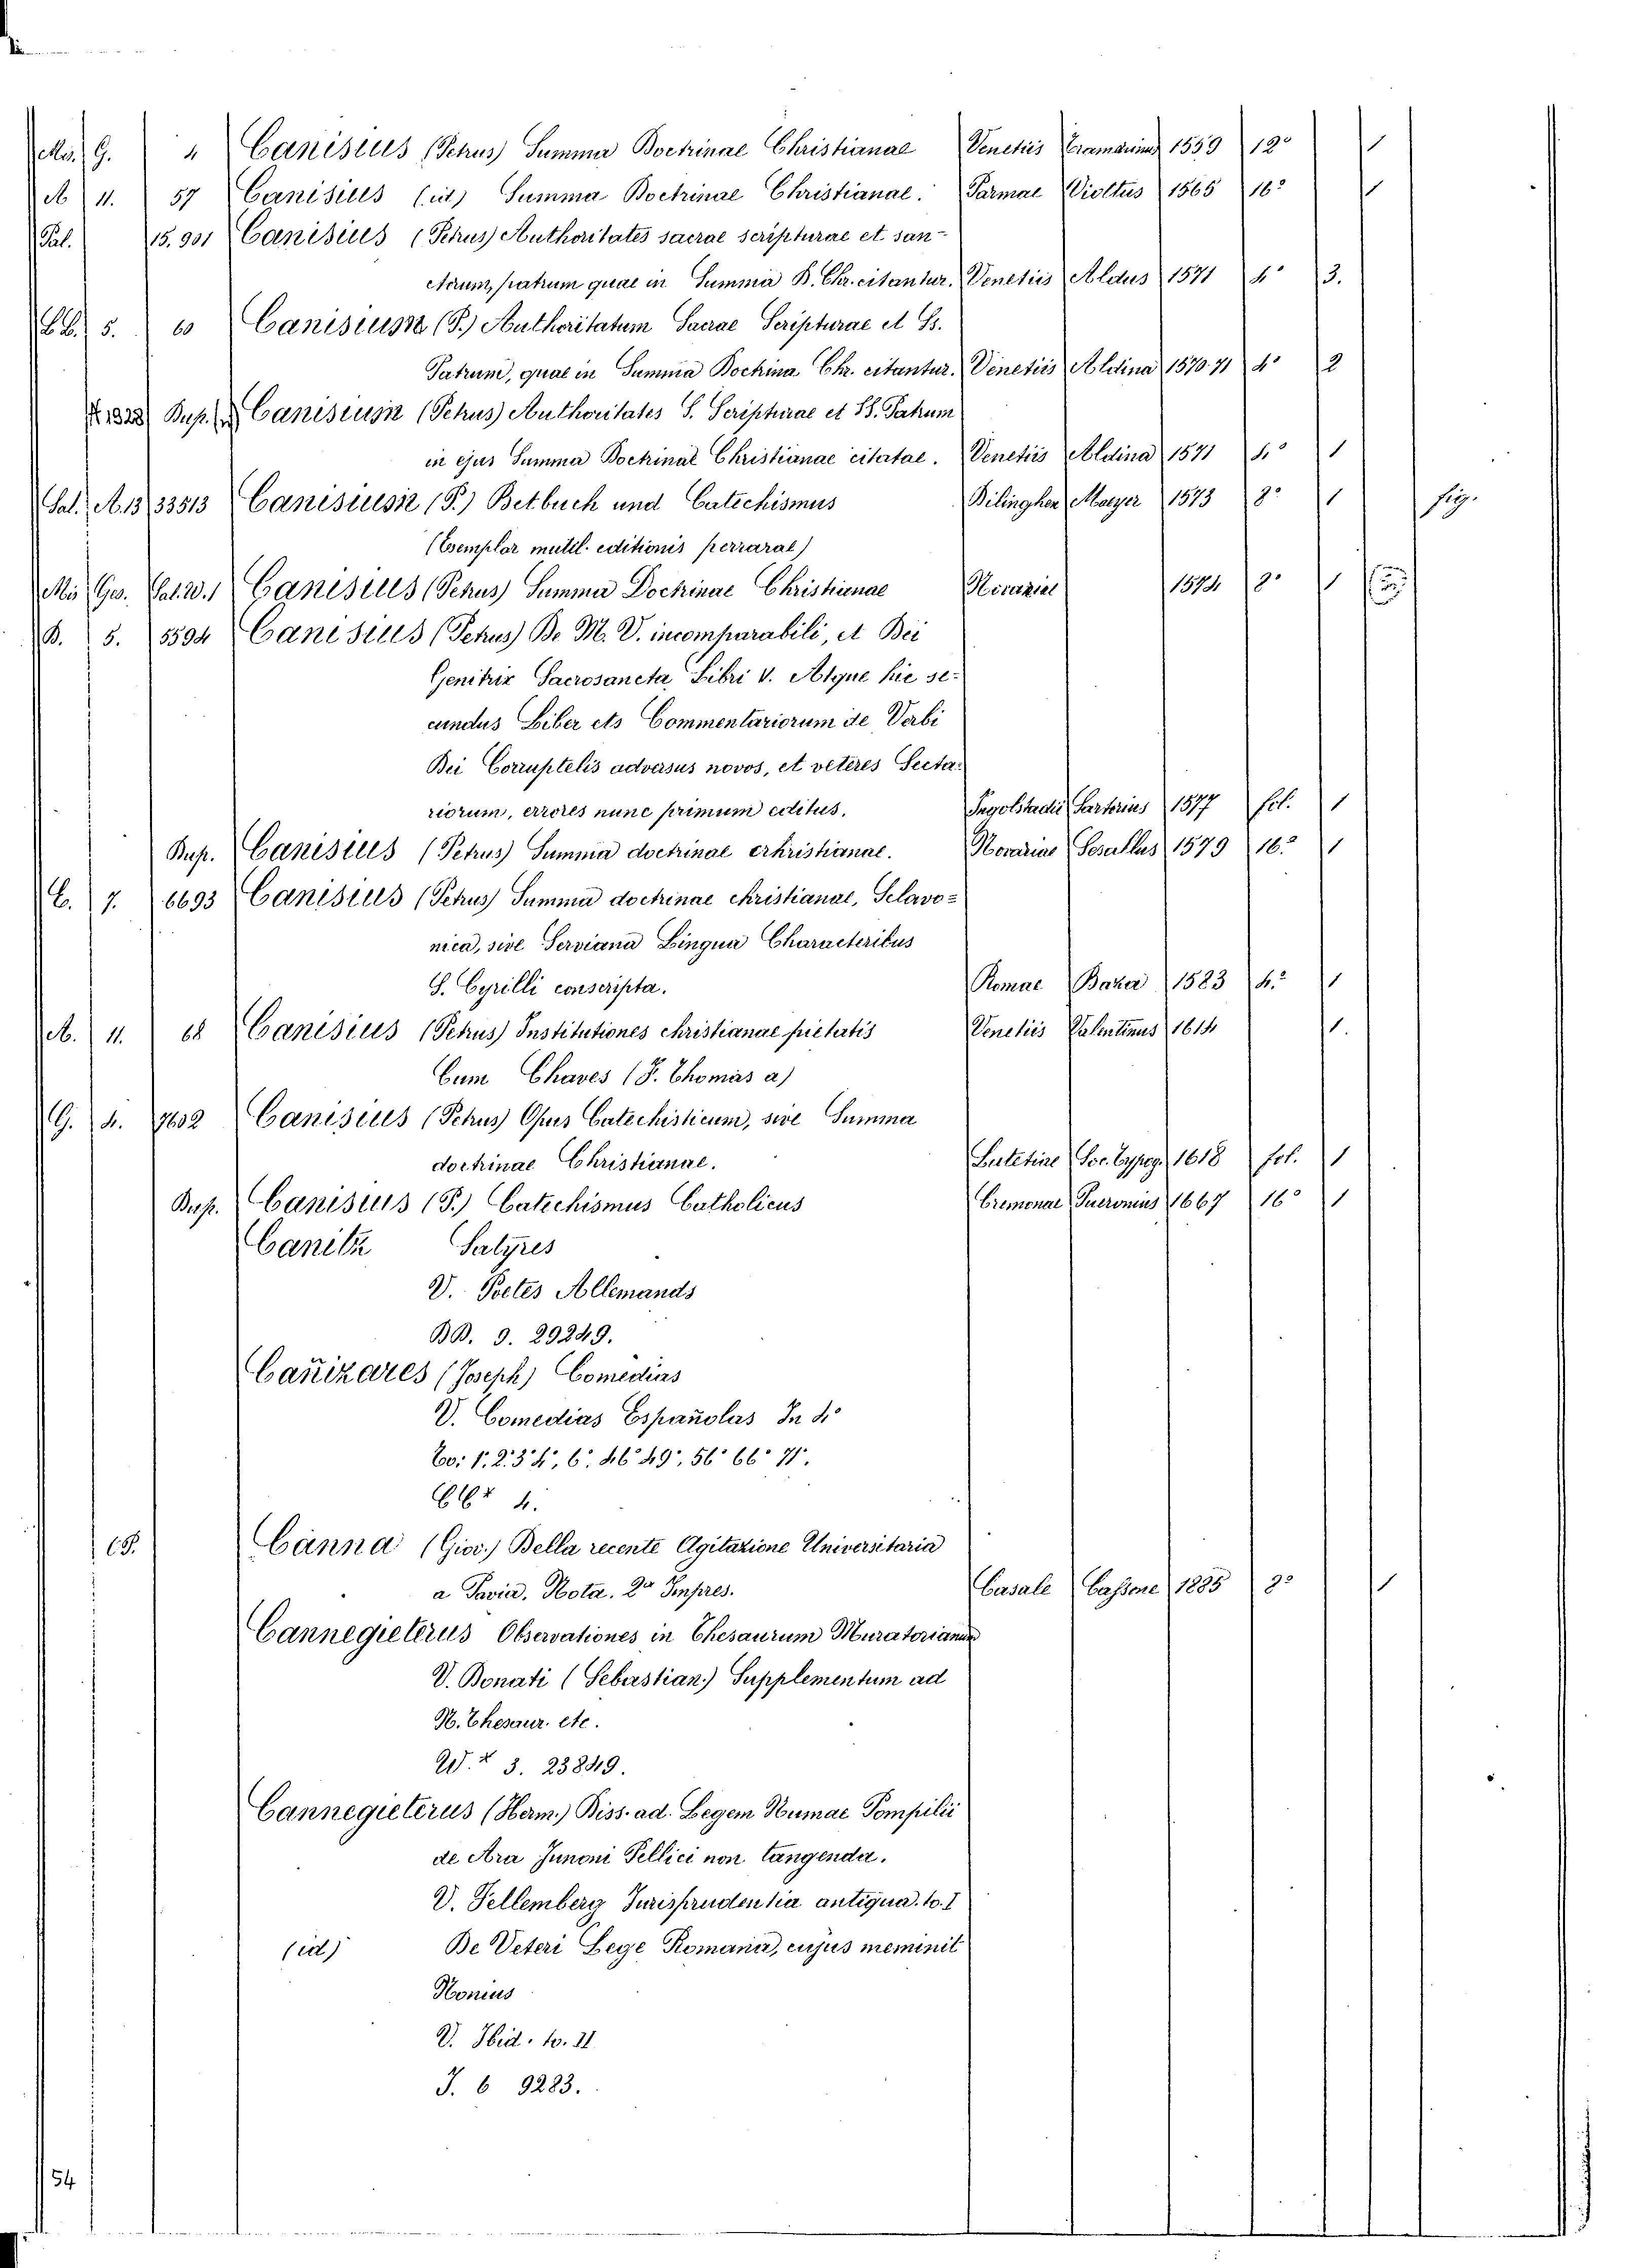 G. 4 Canisius (Petrus) Summa Doctrinae Christianae Venetiis 1559 12° 1
A 11. 57 Canisius (id) Summa Doctrinae Christianae. Parmae Viottus 1565 16° 1
Pal. 15.901 Canisius (Petrus) Authoritates sacrae scripturae et san-
ctorum, patrum quae in Summa D. Chr. citantur. Venetiis Aldus 1571 4° 3.
BB. 5. 60 Canisius (P.) Authoritatum Sacrae Scripturae et Ss.
Patrum, quae in Summa Doctrina Chr. citantur. Venetiis Aldina 1570-71 4° 2
1328 Dup. Canisius (Petrus) Authoritates S. Scripturae et SS. Patrum
in ejus Summa Doctrinae Christianae citatae. Venetiis Aldina 1571 4° 1
Sal. A.13 33513 Canisius (P.) Betbuch und Catechismus Dilinghen Mayer 1573 8° 1 fig.
(Esemplar mutil. editionis perrarae)
Mis Ges. Cat. W. 1 Canisius (Petrus) Summa Doctrinae Christianae Novariae 1574 8° 1
B. 5. 5594 Canisius (Petrus) De M. V. incomparabili, et Dei
Genitrix Sacrosancta Libri V. Atque hic se-
cundus Liber ets Commentariorum de Verbi
Dei Corruptelis adversus novos, et veteres Secta-
riorum, errores nunc primum editus. Ingolstadii Sartorius 1577 fol. 1
Dup. Canisius (Petrus) Summa doctrinae crhristianae. Novariae Sesallus 1579 16° 1
C. 7. 6693 Canisius (Petrus) Summa doctrinae christianae, Sclavo=
nica, sive Serviana Lingua Characteribus
S. Cyrilli conscripta. Romae Baza 1583 4° 1
A. 11. 68 Canisius (Petrus) Institutiones christianae pietatis Venetiis Valentinus 1614 1.
Cum Chaves (F. Thomas a)
G. 4. 7602 Canisius (Petrus) Opus Catechisticum, sive Summa
doctrinae Christianae. Lutetiae Soc. Typog. 1618 fol. 1
Dup. Canisius (P.) Catechismus Catholicus Cremonae Pueronius 1667 16° 1
Canitz Satyres
V. Poetes Allemands
BB. 9. 29249.
Cañizares (Joseph) Comedias
V. Comedias Españolas In 4°
To: 1°. 2°. 3° 4°, 6°. 46° 49°, 56° 66° 71°.
CC* 4.
Canna (Giov.) Della recente Agitazione Universitaria
a Pavia. Nota. 2a Impres. Casale Cassone 1885 8° 1
Cannegieterus Observationes in Thesaurum Muratorianum
V. Donati (Sebastian.) Supplementum ad
N. Thesaur. etc.
W.* 3. 23849.
Cannegieterus (Herm.) Diss. ad. Legem Numae Pompilii
de Ara Junoni Pellici non tangenda.
V. Fellemberg Jurisprudentia antiqua. to. I
(id) De Veteri Lege Romana, cujus meminit
Nonius
V. Ibid. to. II.
J. 6 9283.
54